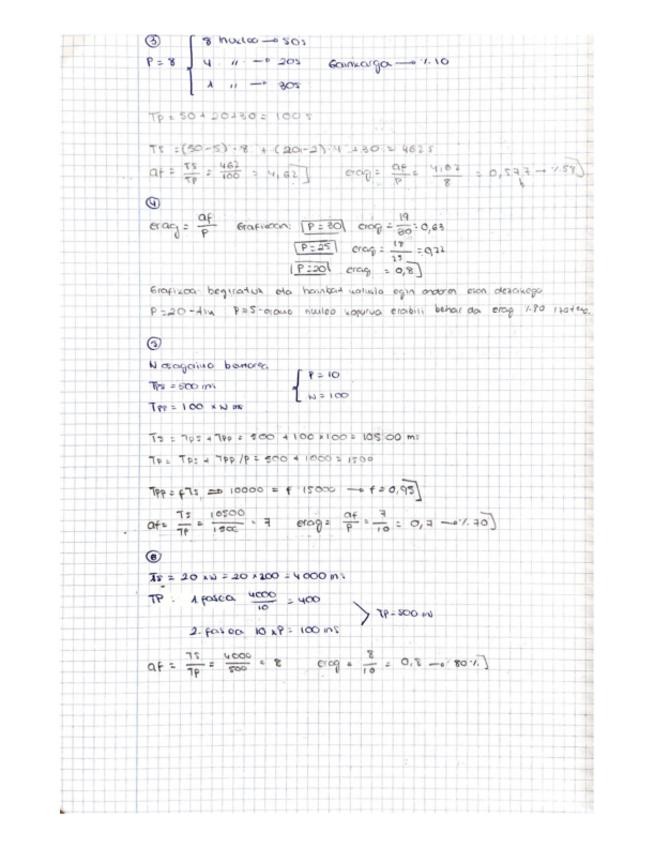 ③
P = 8 { 8 nukleo → 50s
4 " → 20s Gainkarga → % 10
1 " → 30s
Tp = 50 + 20 + 30 = 100 s
Ts = (50-5) · 8 + (20-2) · 4 + 30 = 462 s
af = Ts/Tp = 462/100 = 4,62] erag = af/P = 4,62/8 = 0,577 → % 58]
④
erag = af/P Grafikoan: P = 30 erag = 19/30 = 0,63
P = 25 erag = 18/25 = 0,72
P = 20 erag = 0,8]
Grafikoa begiratuz eta hainbat kalkulu egin ondoren esan dezakegu
P = 20 - P = 5 nukleo kopurua erabili behar da erag % 80
N osagaiko bektorea
Tps = 500 ms { P = 10
Tpp = 100 × N ms N = 100
Ts = Tps + Tpp = 500 + 100 × 100 = 10500 ms
Tp = Tps + Tpp/P = 500 + 1000 = 1500
Tpp = f Ts ⇒ 10000 = f 15000 → f = 0,95]
af = Ts/Tp = 10500/1500 = 7 erag = af/P = 7/10 = 0,7 → % 70]
Ts = 20 × N = 20 × 200 = 4000 ms
TP: 1. fasea 4000/10 = 400
TP = 500 ms
2. fasea 10 × P = 100 ms
af = Ts/Tp = 4000/500 = 8 erag = 8/10 = 0,8 → 80 %]